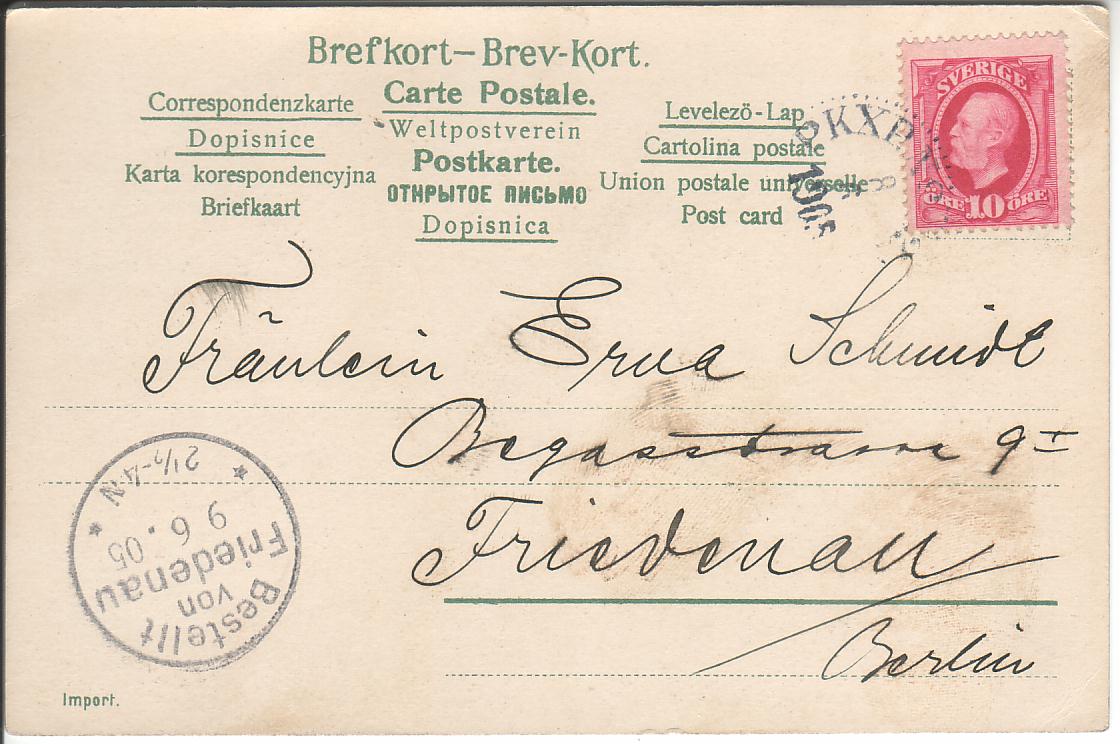 Brefkort–Brev-Kort.
Correspondenzkarte
Dopisnice
Karta korespondencyjna
Briefkaart
Carte Postale.
Weltpostverein
Postkarte.
ОТКРЫТОЕ ПИСЬМО
Dopisnica
Levelező-Lap
Cartolina postale
Union postale universelle
Post card
SVERIGE
ÖRE 10 ÖRE
PKXP
1905
Fräulein Erna Schmidt
Begasstrasse 9 I
Friedenau
Berlin
Bestellt
von
Friedenau
9 6. 05
* 2½-4N *
Import.